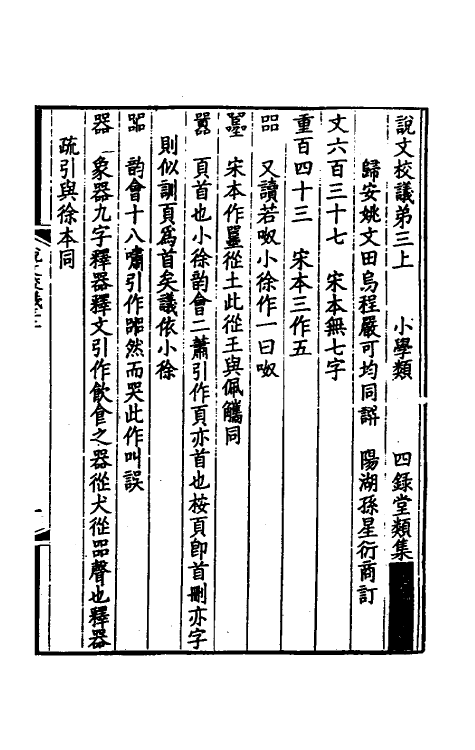 說文校議弟三上　小學類　四錄堂類集
歸安姚文田烏程嚴可均同譔　陽湖孫星衍商訂
文六百三十七　宋本無七字
重百四十三　宋本三作五
㗊　又讀若呶小徐作一曰呶
嚚　宋本作㗊從土此從王與佩觿同
囂　頁首也小徐韵會二蕭引作頁亦首也桉頁卽首刪亦字
則似訓頁爲首矣議依小徐
㗊　韵會十八嘯引作嘂然而哭此作叫誤
器　象器九字釋器釋文引作飮食之器從犬從㗊聲也釋器
疏引與徐本同